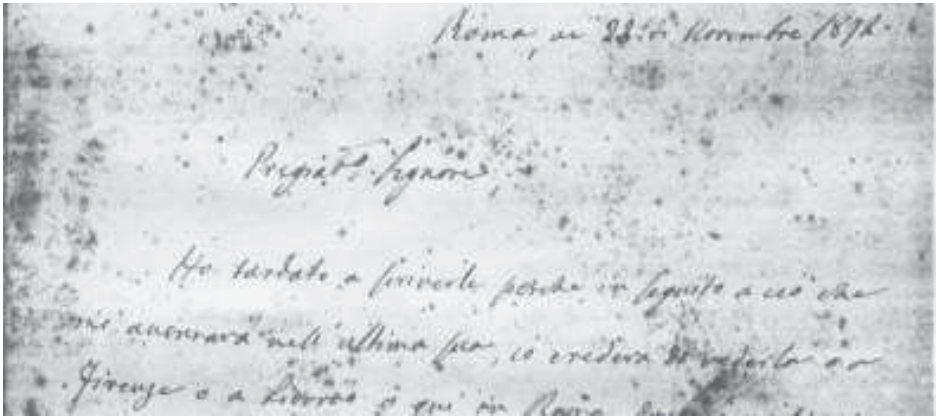 Roma, di Novembre 187
Pregiat. Signore,
Ho tardato a scriverle perche in seguito a ciò che
mi nell'ultima sua, io credeva di vederla o a
Firenze o a Livorno o qui in Roma